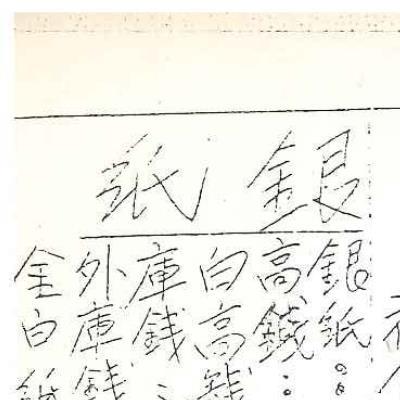 銀紙
銀紙
高錢
白高錢
庫錢
外庫錢
金白紙